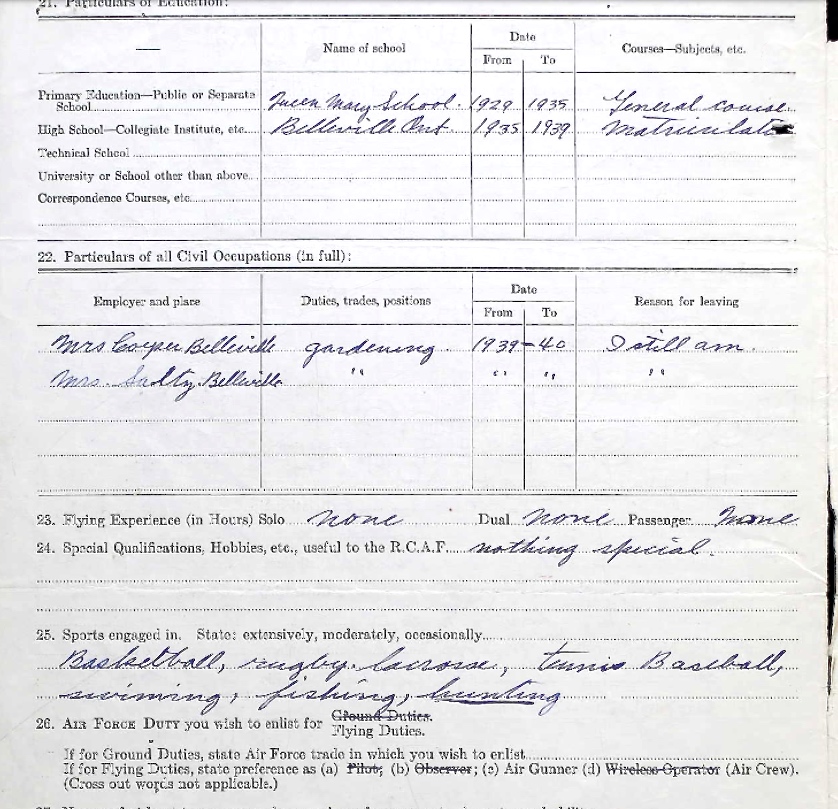 21. Particulars of Education:
Name of school Date Courses—Subjects, etc.
From To
Primary Education—Public or Separate
School Queen Mary School. 1929 1935 General course.
High School—Collegiate Institute, etc. Belleville Ont. 1935 1939 Matriculate
Technical School
University or School other than above
Correspondence Courses, etc.
22. Particulars of all Civil Occupations (in full):
Employer and place Duties, trades, positions Date Reason for leaving
From To
Mrs Cooper Belleville gardening. 1939-40 I still am.
Mrs. Belleville " " " "
23. Flying Experience (in Hours) Solo none Dual none Passenger none
24. Special Qualifications, Hobbies, etc., useful to the R.C.A.F. nothing special.
25. Sports engaged in. State: extensively, moderately, occasionally
Basketball, rugby. lacrosse, tennis Baseball,
swiming, fishing, hunting
26. AIR FORCE DUTY you wish to enlist for Ground Duties.
Flying Duties.
If for Ground Duties, state Air Force trade in which you wish to enlist
If for Flying Duties, state preference as (a) Pilot; (b) Observer; (c) Air Gunner (d) Wireless Operator (Air Crew).
(Cross out words not applicable.)